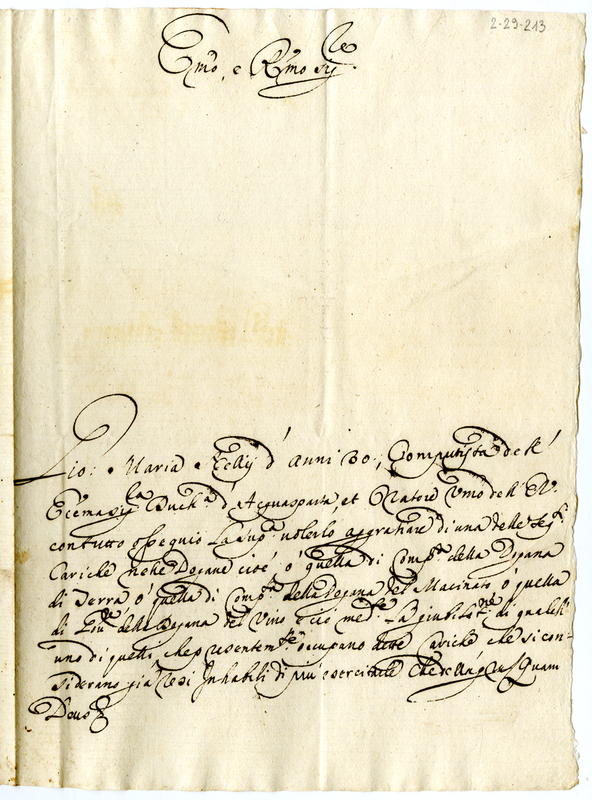 2-29-213
Emo, e Rmo Sigre
Gio: Maria d' Anni 30:, Computista dell'
Eccma Sigra Duchsa d' Acquasparta, et Oratore Umo dell' E.V.
con tutto ossequio La supca volerlo aggratiare di una delle segti
Cariche nelle Dogane cioè, ò quella di Compta della Dogana
di Terra ò quella di Compta della Dogana del Macinato ò quella
di della Dogana del Vino e ciò medte La giubilatne di qualch'
uno di quelli che presentemte occupano dette Cariche che si con-
siderano già resi Inhabili di più esercitarle Che